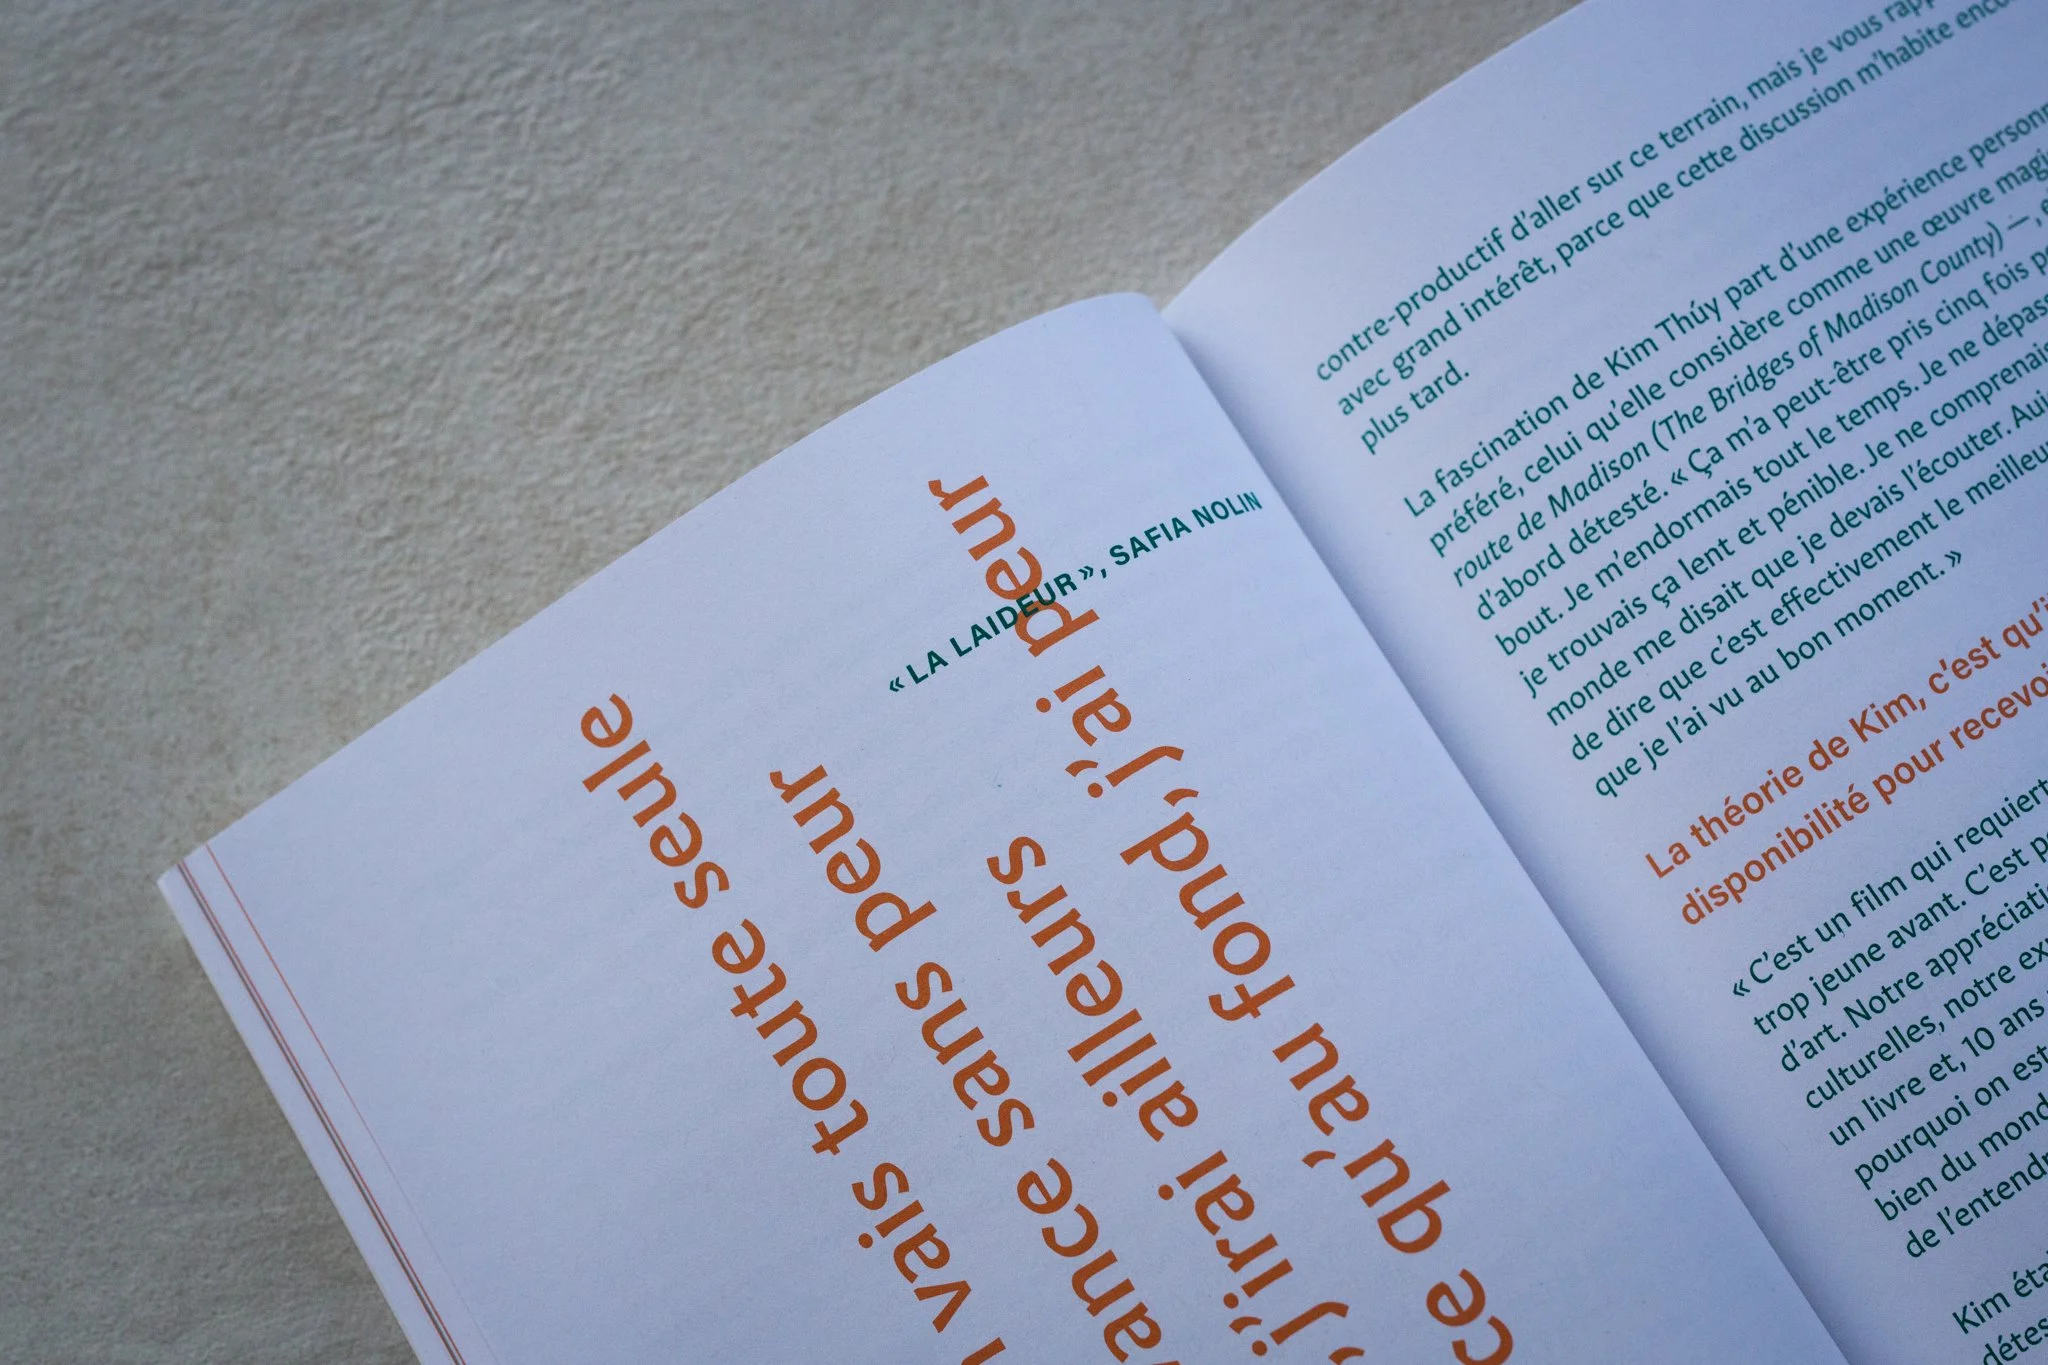 vais toute seule
sans peur
j'irai ailleurs
ce qu'au fond, j'ai peur
« LA LAIDEUR », SAFIA NOLIN
contre-productif d'aller sur ce terrain, mais je vous
avec grand intérêt, parce que cette discussion m'habite
plus tard.
La fascination de Kim Thúy part d'une expérience
préféré, celui qu'elle considère comme une œuvre
route de Madison (The Bridges of Madison County) —,
d'abord détesté. « Ça m'a peut-être pris cinq fois
bout. Je m'endormais tout le temps. Je ne
je trouvais ça lent et pénible. Je ne comprenais
monde me disait que je devais l'écouter.
de dire que c'est effectivement le meilleur
que je l'ai vu au bon moment. »
La théorie de Kim, c'est
disponibilité pour
« C'est un film qui requiert
trop jeune avant. C'est
d'art. Notre
culturelles, notre
un livre et, 10 ans
pourquoi on est
bien du
de
Kim